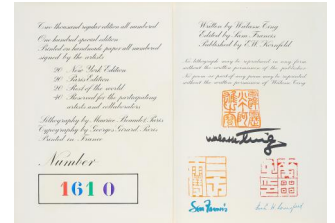 One thousand regular edition all numbered
One hundred special edition
Printed on handmade paper all numbered
signed by the artists
20 New York Edition
20 Paris Edition
20 Rest of the world
40 Reserved for the participating
artists and collaborators
Lithography by Maurice Beaudet, Paris
Typography by Georges Girard, Paris
Printed in France
Number
1610
Written by Walasse Ting
Edited by Sam Francis
Published by E.W. Kornfeld
No lithograph may be reproduced in any form
without the written permission of the publisher
No poem or part of poem may be reproduced
without the written permission of Walasse Ting
walasse Ting
Sam Francis